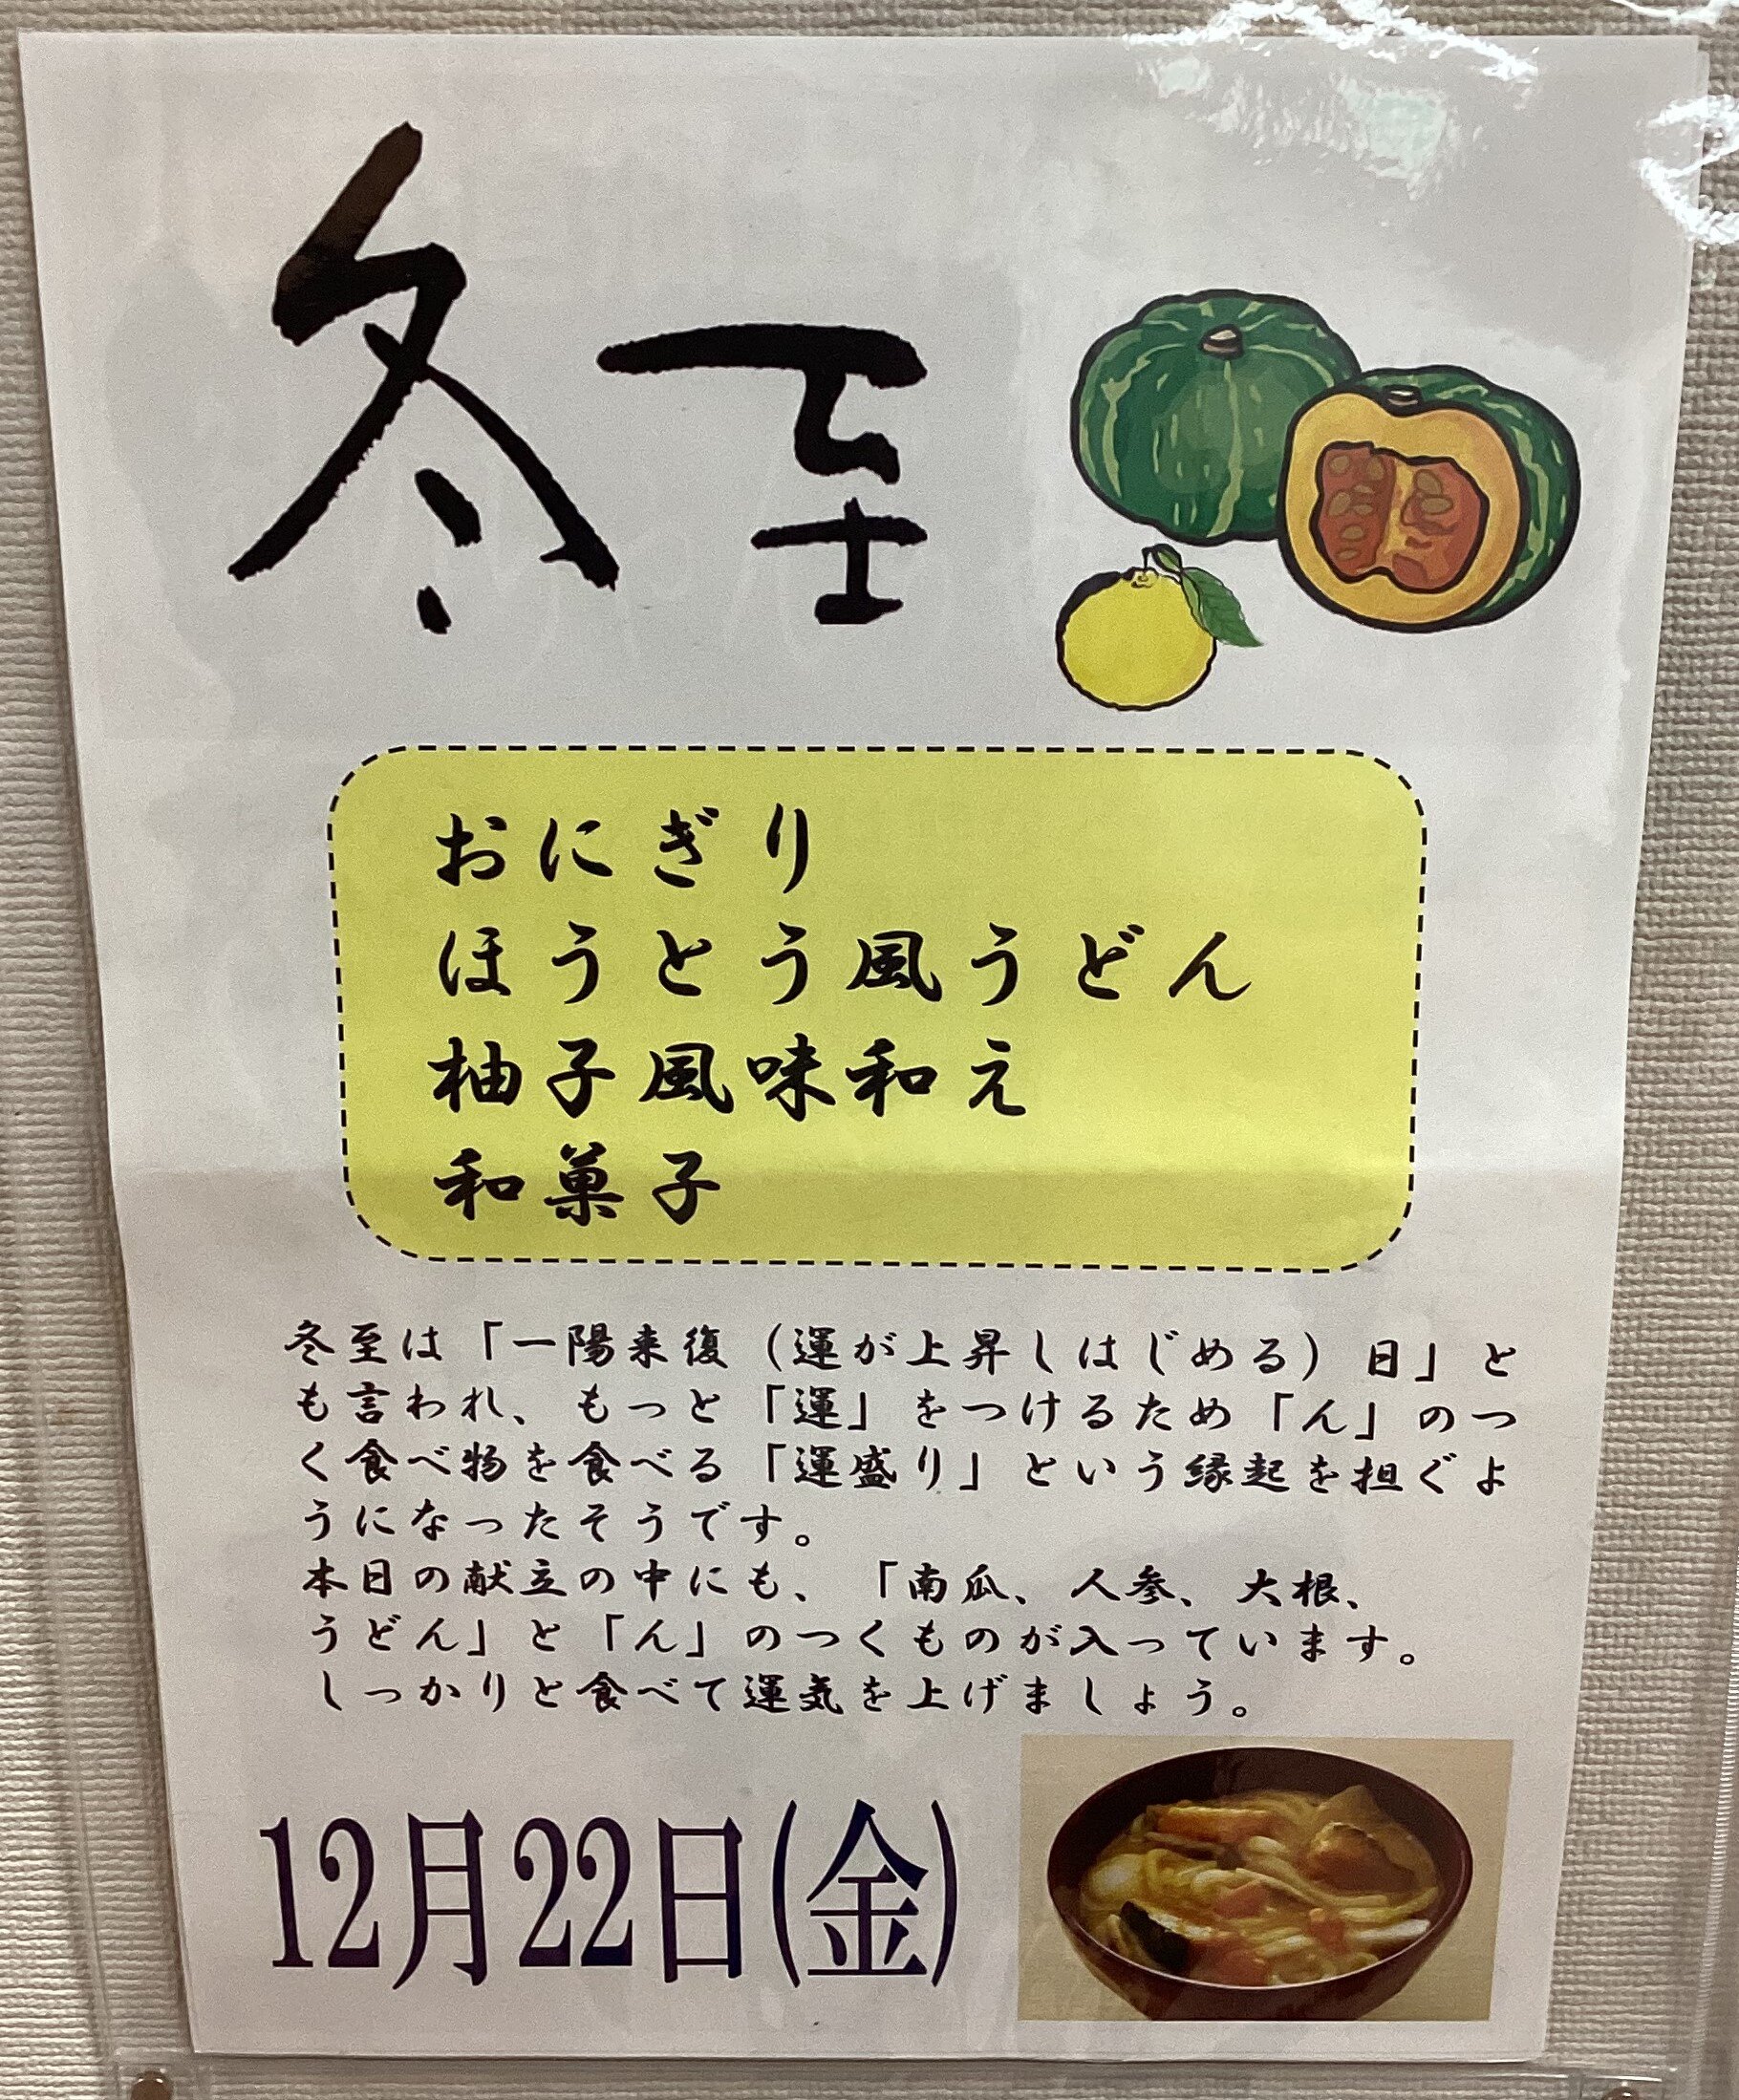 冬至
おにぎり
ほうとう風うどん
柚子風味和え
和菓子
冬至は「一陽来復（運が上昇しはじめる）日」と
も言われ、もっと「運」をつけるため「ん」のつ
く食べ物を食べる「運盛り」という縁起を担ぐよ
うになったそうです。
本日の献立の中にも、「南瓜、人参、大根、
うどん」と「ん」のつくものが入っています。
しっかりと食べて運気を上げましょう。
12月22日(金)